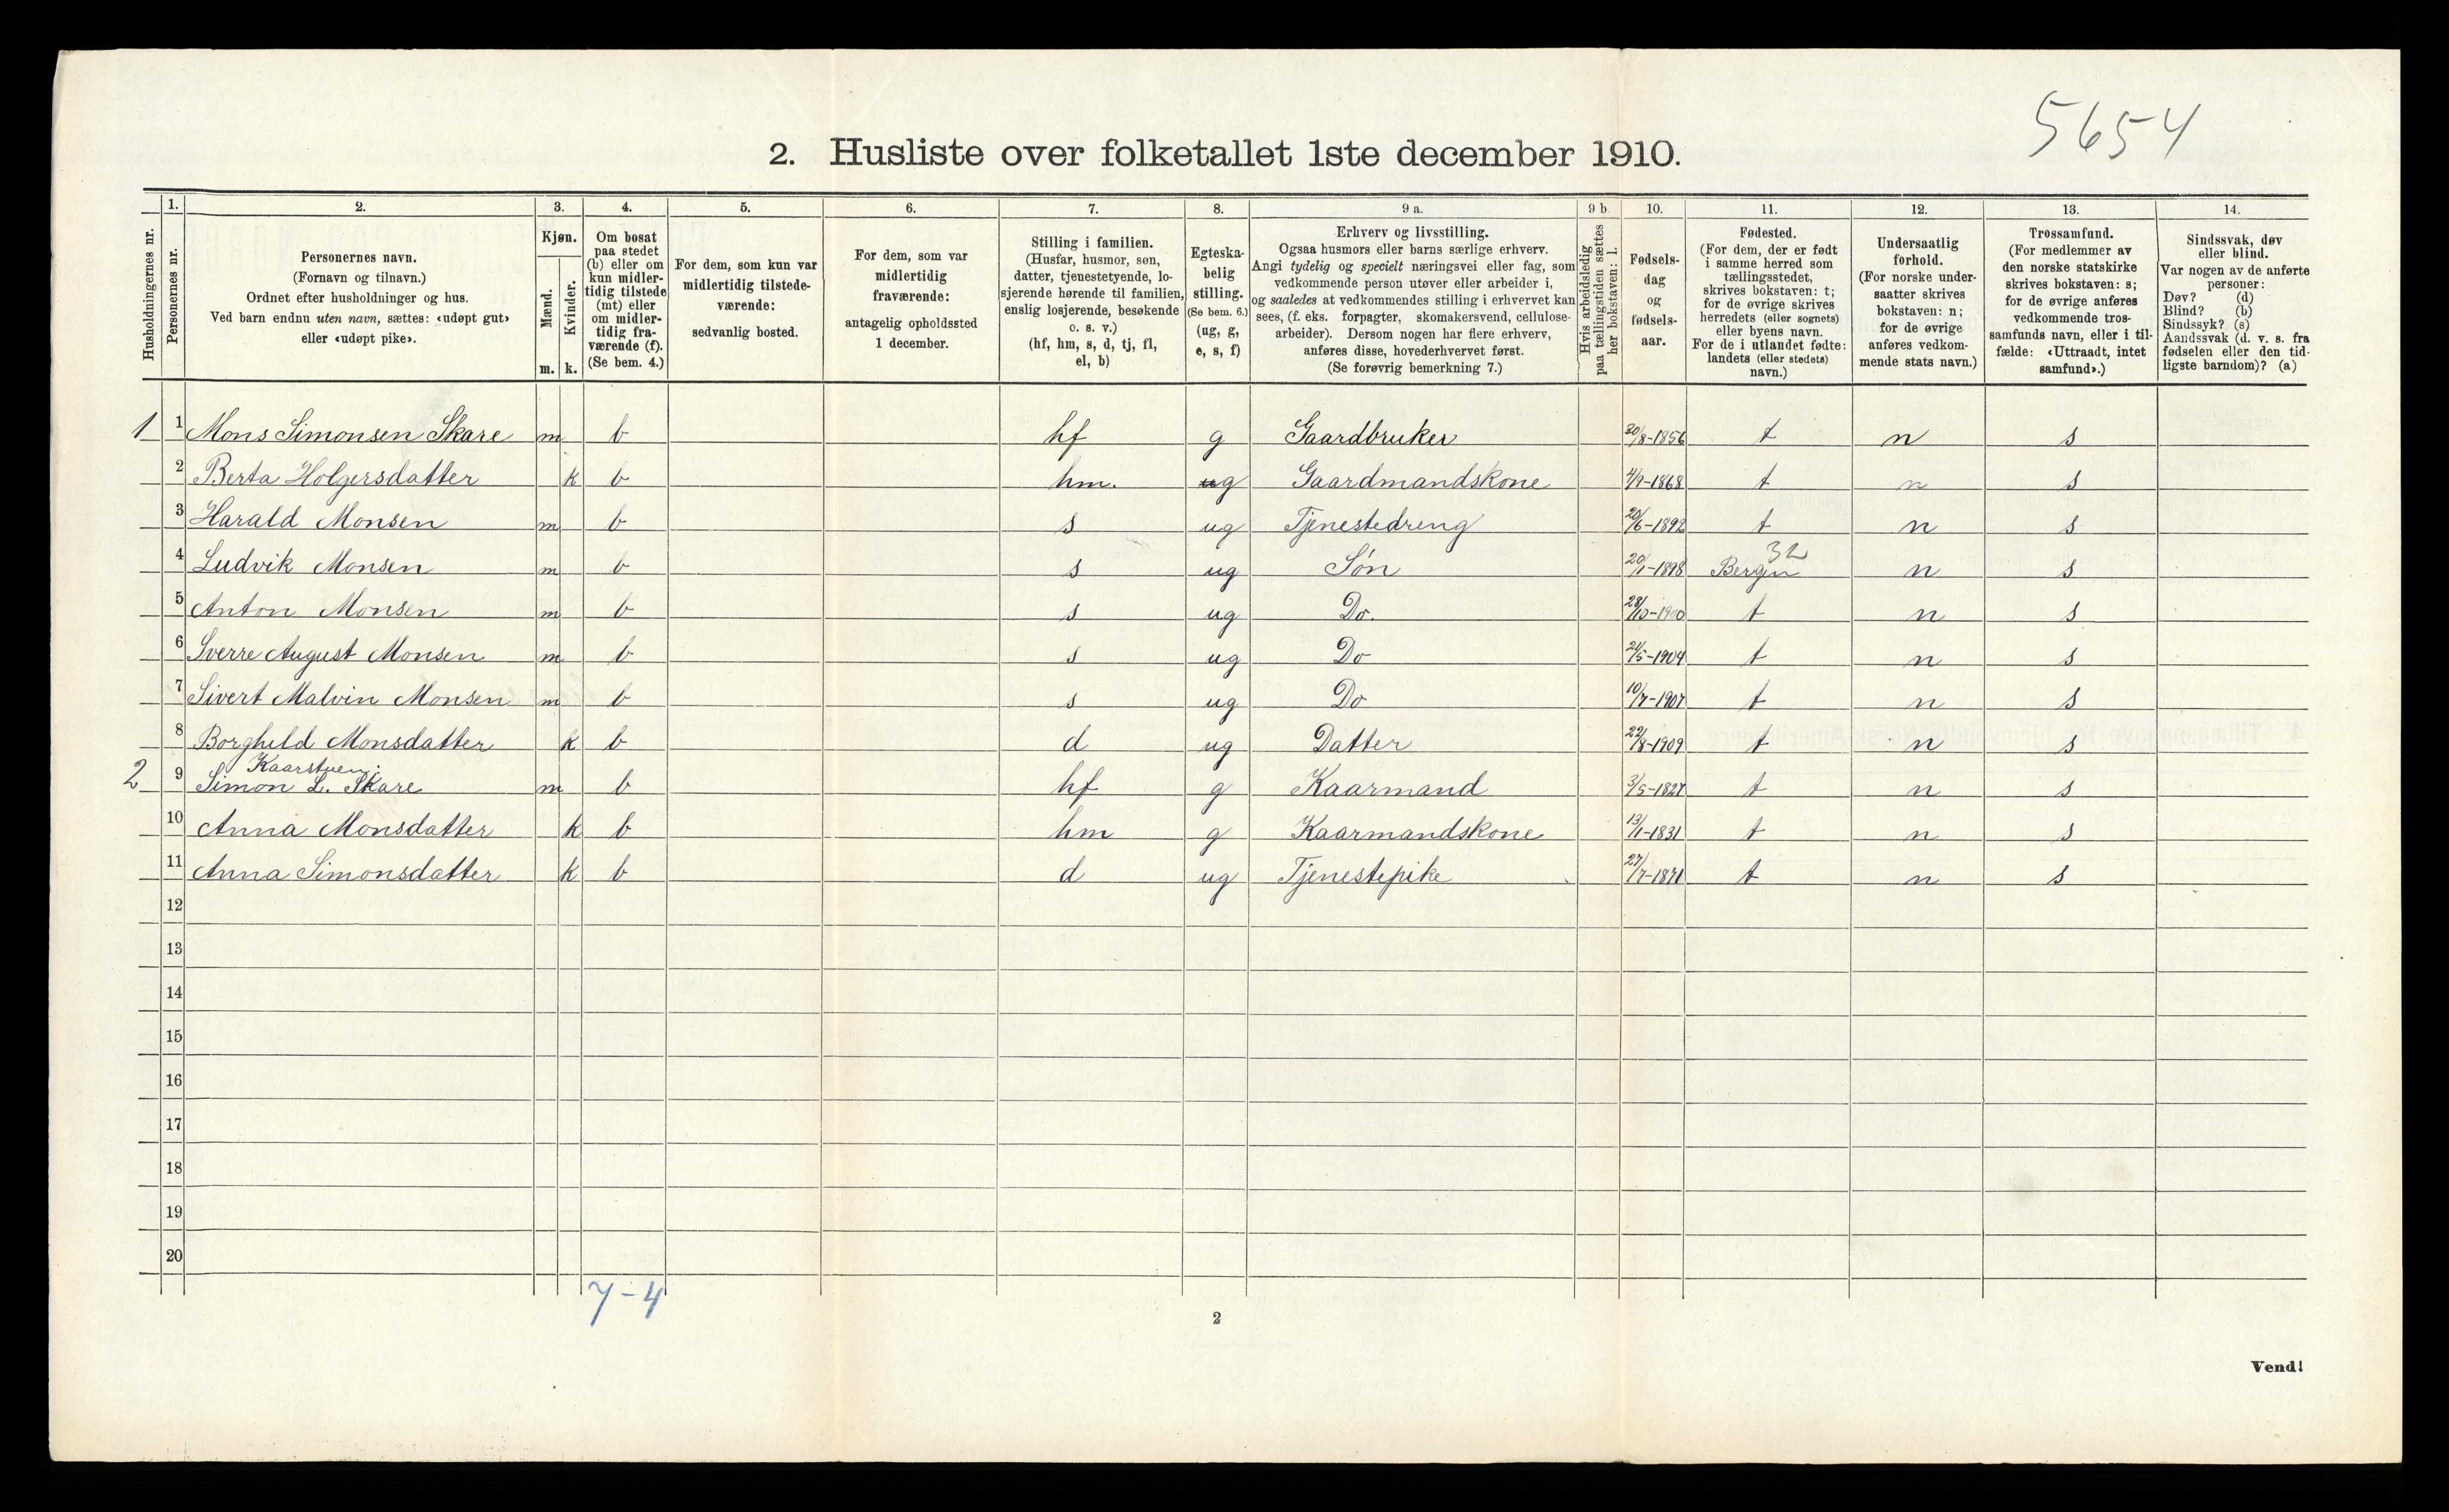 5654
2. Husliste over folketallet 1ste december 1910.
1. 2. 3. 4. 5. 6. 7. 8. 9 a. 9 b 10. 11. 12. 13. 14.
Husholdningernes nr.
Personernes nr.
Personernes navn.
(Fornavn og tilnavn.)
Ordnet efter husholdninger og hus.
Ved barn endnu uten navn, sættes: «udøpt gut»
eller «udøpt pike».
Kjøn.
Mænd.
Kvinder.
m. k.
Om bosat
paa stedet
(b) eller om
kun midler-
tidig tilstede
(mt) eller
om midler-
tidig fra-
værende (f).
(Se bem. 4.)
For dem, som kun var
midlertidig tilstede-
værende:
sedvanlig bosted.
For dem, som var
midlertidig
fraværende:
antagelig opholdssted
1 december.
Stilling i familien.
(Husfar, husmor, søn,
datter, tjenestetyende, lo-
sjerende hørende til familien,
enslig losjerende, besøkende
o. s. v.)
(hf, hm, s, d, tj, fl,
el, b)
Egteska-
belig
stilling.
(Se bem. 6.)
(ug, g,
e, s, f)
Erhverv og livsstilling.
Ogsaa husmors eller barns særlige erhverv.
Angi tydelig og specielt næringsvei eller fag, som
vedkommende person utøver eller arbeider i,
og saaledes at vedkommendes stilling i erhvervet kan
sees, (f. eks. forpagter, skomakersvend, cellulose-
arbeider). Dersom nogen har flere erhverv,
anføres disse, hovederhvervet først.
(Se forøvrig bemerkning 7.)
Hvis arbeidsledig
paa tællingstiden sættes
her bokstaven: l.
Fødsels-
dag
og
fødsels-
aar.
Fødested.
(For dem, der er født
i samme herred som
tællingsstedet,
skrives bokstaven: t;
for de øvrige skrives
herredets (eller sognets)
eller byens navn.
For de i utlandet fødte:
landets (eller stedets)
navn.)
Undersaatlig
forhold.
(For norske under-
saatter skrives
bokstaven: n;
for de øvrige
anføres vedkom-
mende stats navn.)
Trossamfund.
(For medlemmer av
den norske statskirke
skrives bokstaven: s;
for de øvrige anføres
vedkommende tros-
samfunds navn, eller i til-
fælde: «Uttraadt, intet
samfund».)
Sindssvak, døv
eller blind.
Var nogen av de anførte
personer:
Døv? (d)
Blind? (b)
Sindssyk? (s)
Aandssvak (d. v. s. fra
fødselen eller den tid-
ligste barndom)? (a)
1 1 Mons Simonsen Skare m b hf g Gaardbruker 30/8-1856 t n s
2 Berta Holgersdatter k b hm. ug Gaardmandskone 4/9-1868 t n s
3 Harald Monsen m b s ug Tjenestedreng 20/6-1892 t n s
32
4 Ludvik Monsen m b s ug Søn 20/1-1898 Bergen n s
5 Anton Monsen m b s ug Do. 28/10-1900 t n s
6 Sverre August Monsen m b s ug Do 21/5-1904 t n s
7 Sivert Malvin Monsen m b s ug Do 10/7-1907 t n s
8 Borghild Monsdatter k b d ug Datter 22/8-1909 t n s
Kaarstuen:
2 9 Simon L. Skare m b hf g Kaarmand 3/5-1827 t n s
10 Anna Monsdatter k b hm g Kaarmandskone 13/1-1831 t n s
11 Anna Simonsdatter k b d ug Tjenestepike 27/7-1871 t n s
12
13
14
15
16
17
18
19
20
7-4
2
Vend!